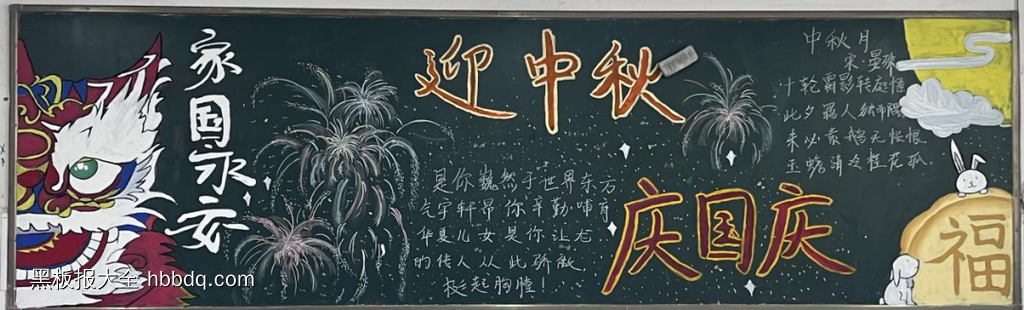 家国永安
迎中秋
庆国庆
是你巍然于世界东方
气宇轩昂你辛勤哺育
华夏儿女是你让龙
的传人从此骄傲
挺起胸膛！
中秋月
宋·晏殊
十轮霜影转庭梧
此夕羁人独向隅
未必素娥无怅恨
玉蟾清冷桂花孤.
福
黑板报大全·hbbdq.com